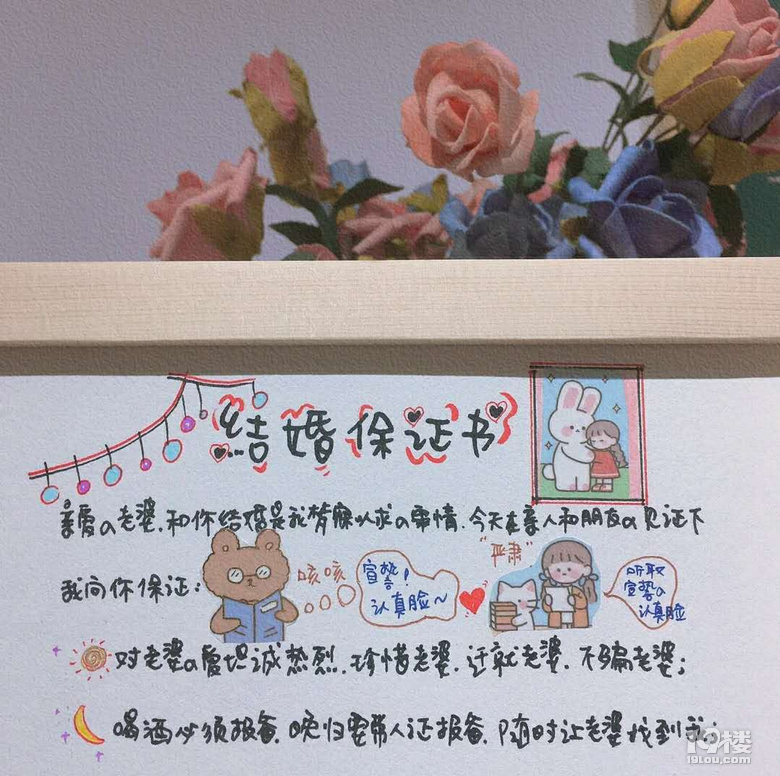 结婚保证书
亲爱的老婆，和你结婚是我梦寐以求的事情，今天在亲人和朋友的见证下
我向你保证：
咳咳
宣誓！
认真脸～
"严肃"
听取
宣誓的
认真脸
对老婆的爱坦诚热烈，珍惜老婆，迁就老婆，不骗老婆；
喝酒必须报备，晚归要带人证报备，随时让老婆找到我；
19楼
19lou.com